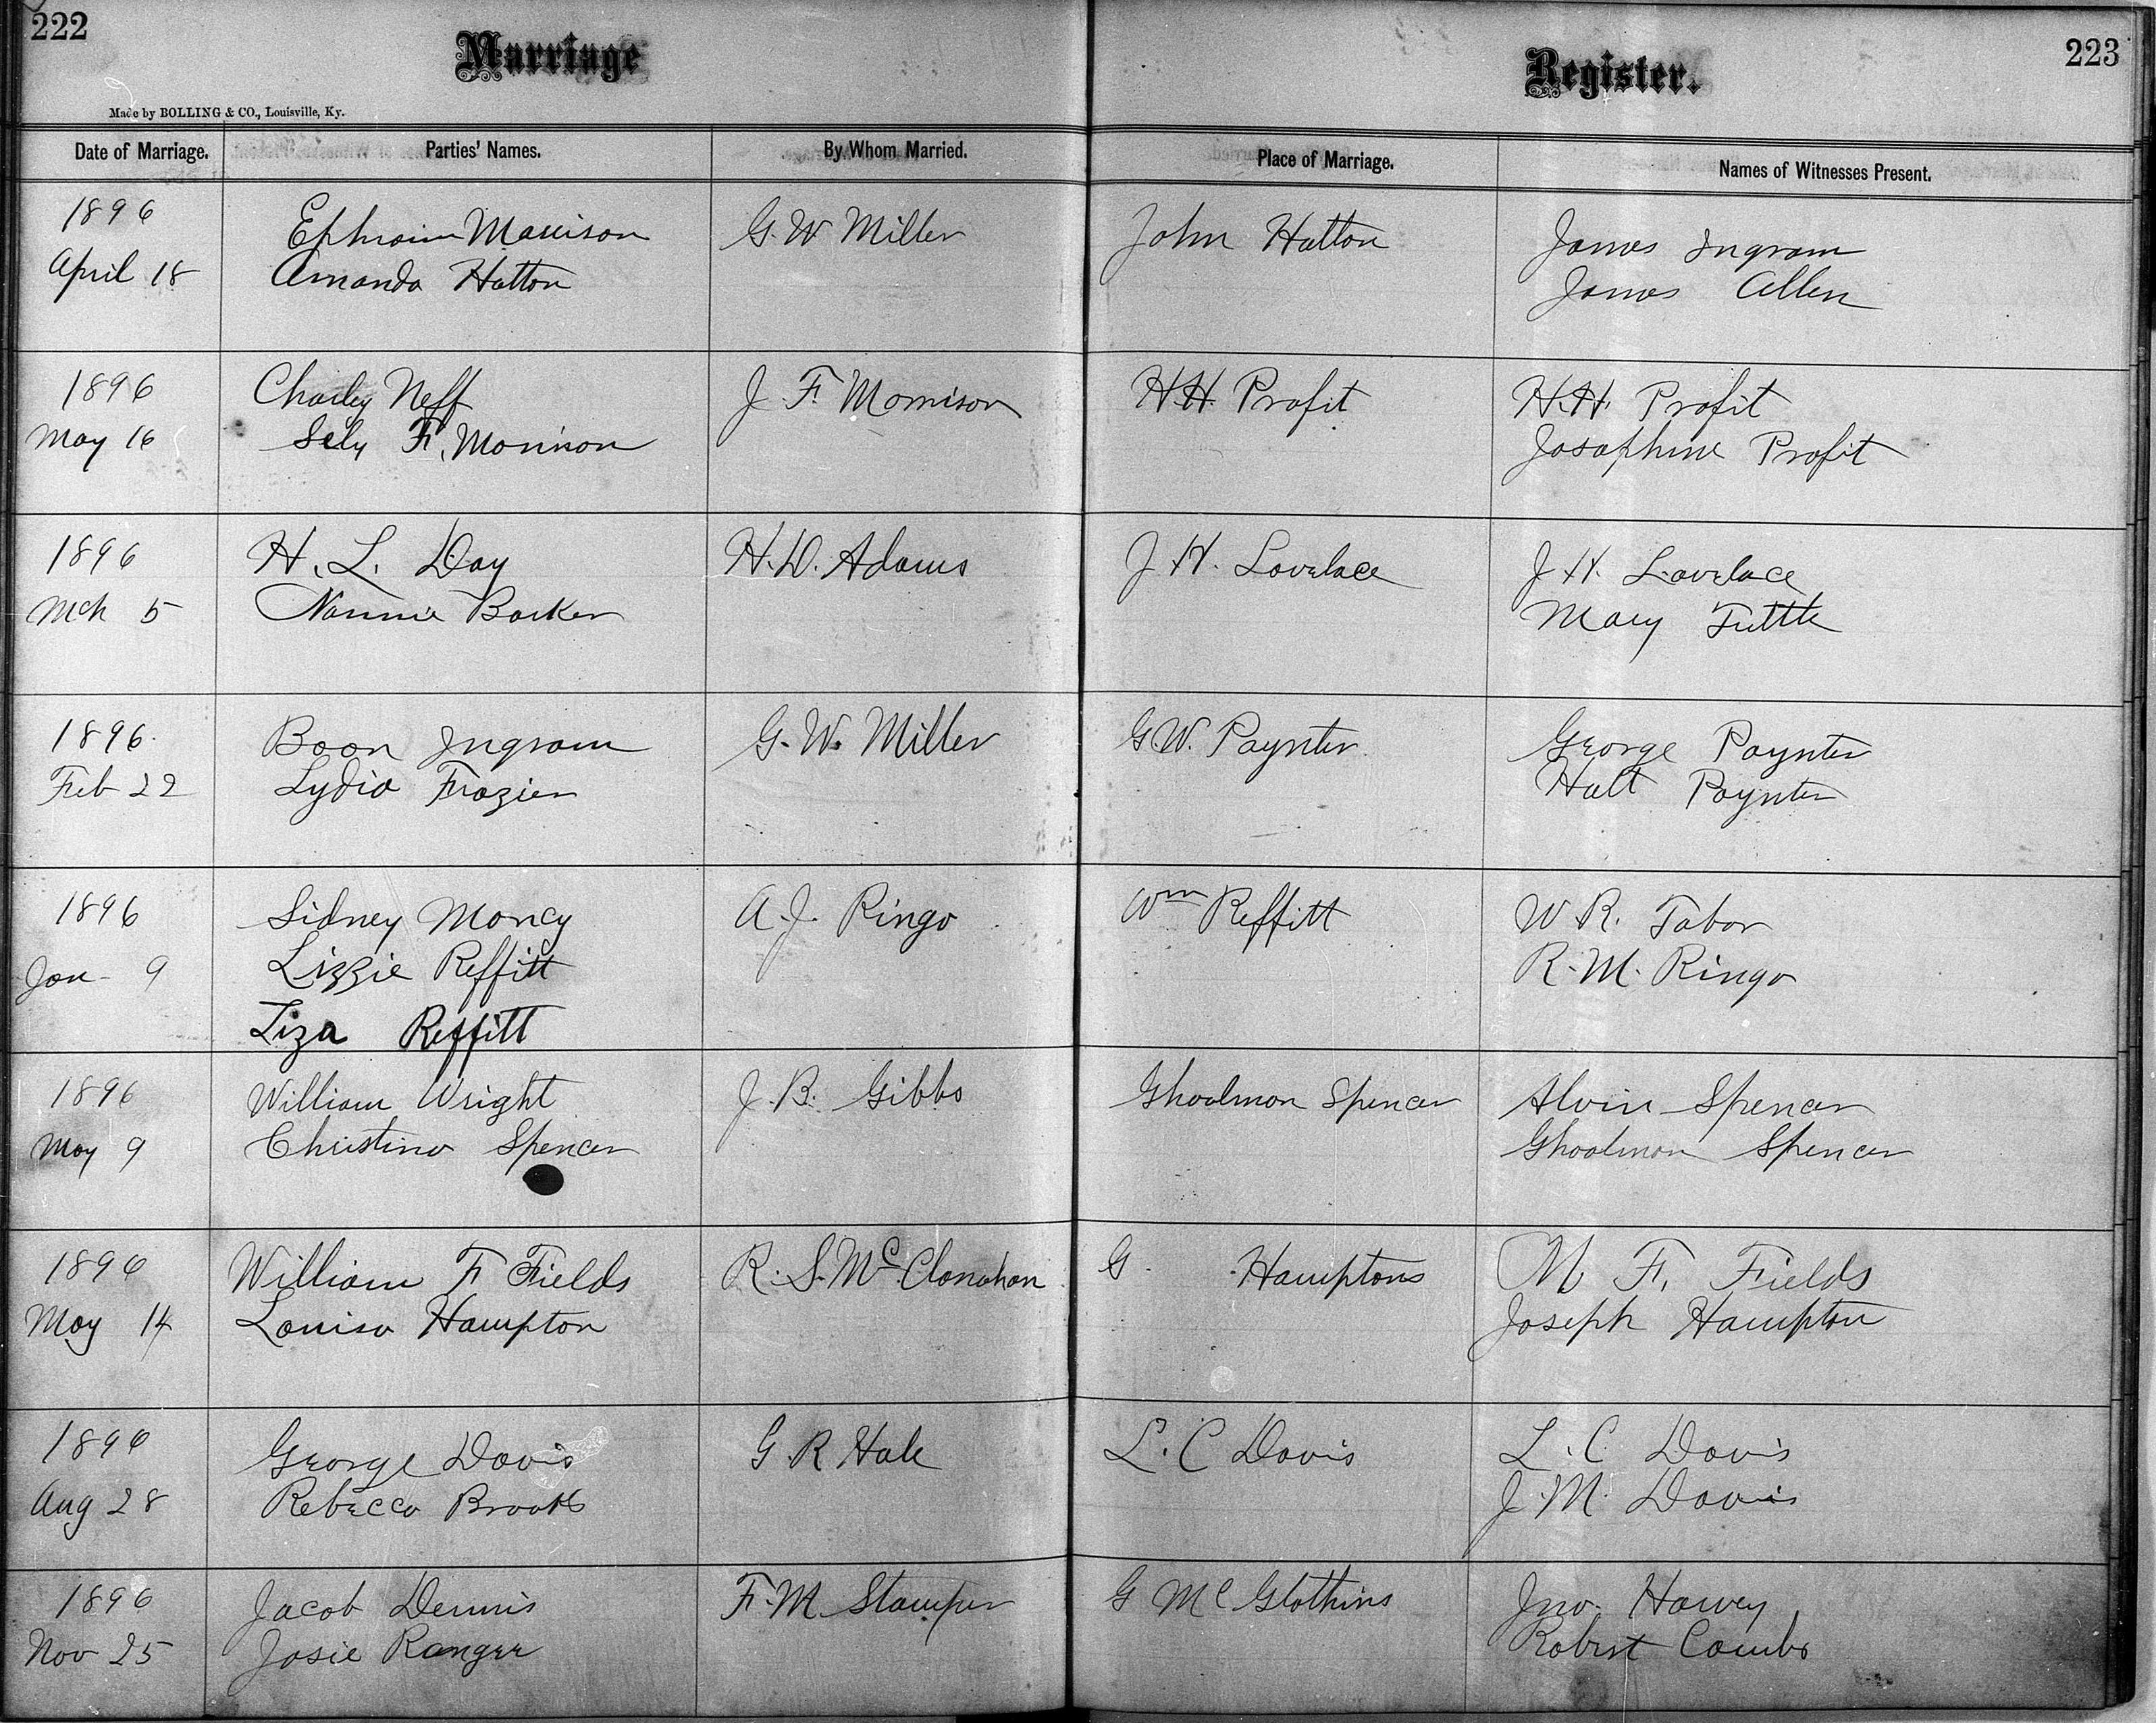 222
Marriage
Register.
223
Made by BOLLING & CO., Louisville, Ky.
Date of Marriage.
Parties' Names.
By Whom Married.
Place of Marriage.
Names of Witnesses Present.
1896
April 18
Ephraim
Amanda Hatton
G. W Miller
John Hatton
James Ingram
James Allen
1896
May 16
Charley Neff
F. Morrison
J. F. Morrison
H.H. Profit
H.H. Profit
Josephine Profit
1896
Mch 5
H. L. Day
Nannie Barker
H. D. Adams
J. H. Lovelace
J. H. Lovelace
Mary Tuttle
1896
Feb 22
Boon Ingram
Lydia Frazier
G. W. Miller
G.W. Paynter
George Paynter
Paynter
1896
Jan 9
Sidney Moncy
Lizzie Reffitt
Liza Reffitt
A. J. Ringo
Wm Reffitt
W. R. Tabor
R. M. Ringo
1896
May 9
William Wright
Christina Spencer
J. B. Gibbs
Gholmon Spencer
Alvin Spencer
Gholmon Spencer
1896
May 14
William F Fields
Louisa Hampton
R. S. McClanahan
G. Hamptons
M F. Fields
Joseph Hampton
1896
Aug 28
George Davis
Rebecca Brooks
G R Hale
L. C Davis
L. C. Davis
J. M. Davis
1896
Nov 25
Jacob Dennis
Josie Ranger
F. M Stamper
G McGlothins
Jno. Harvey
Robert Combs